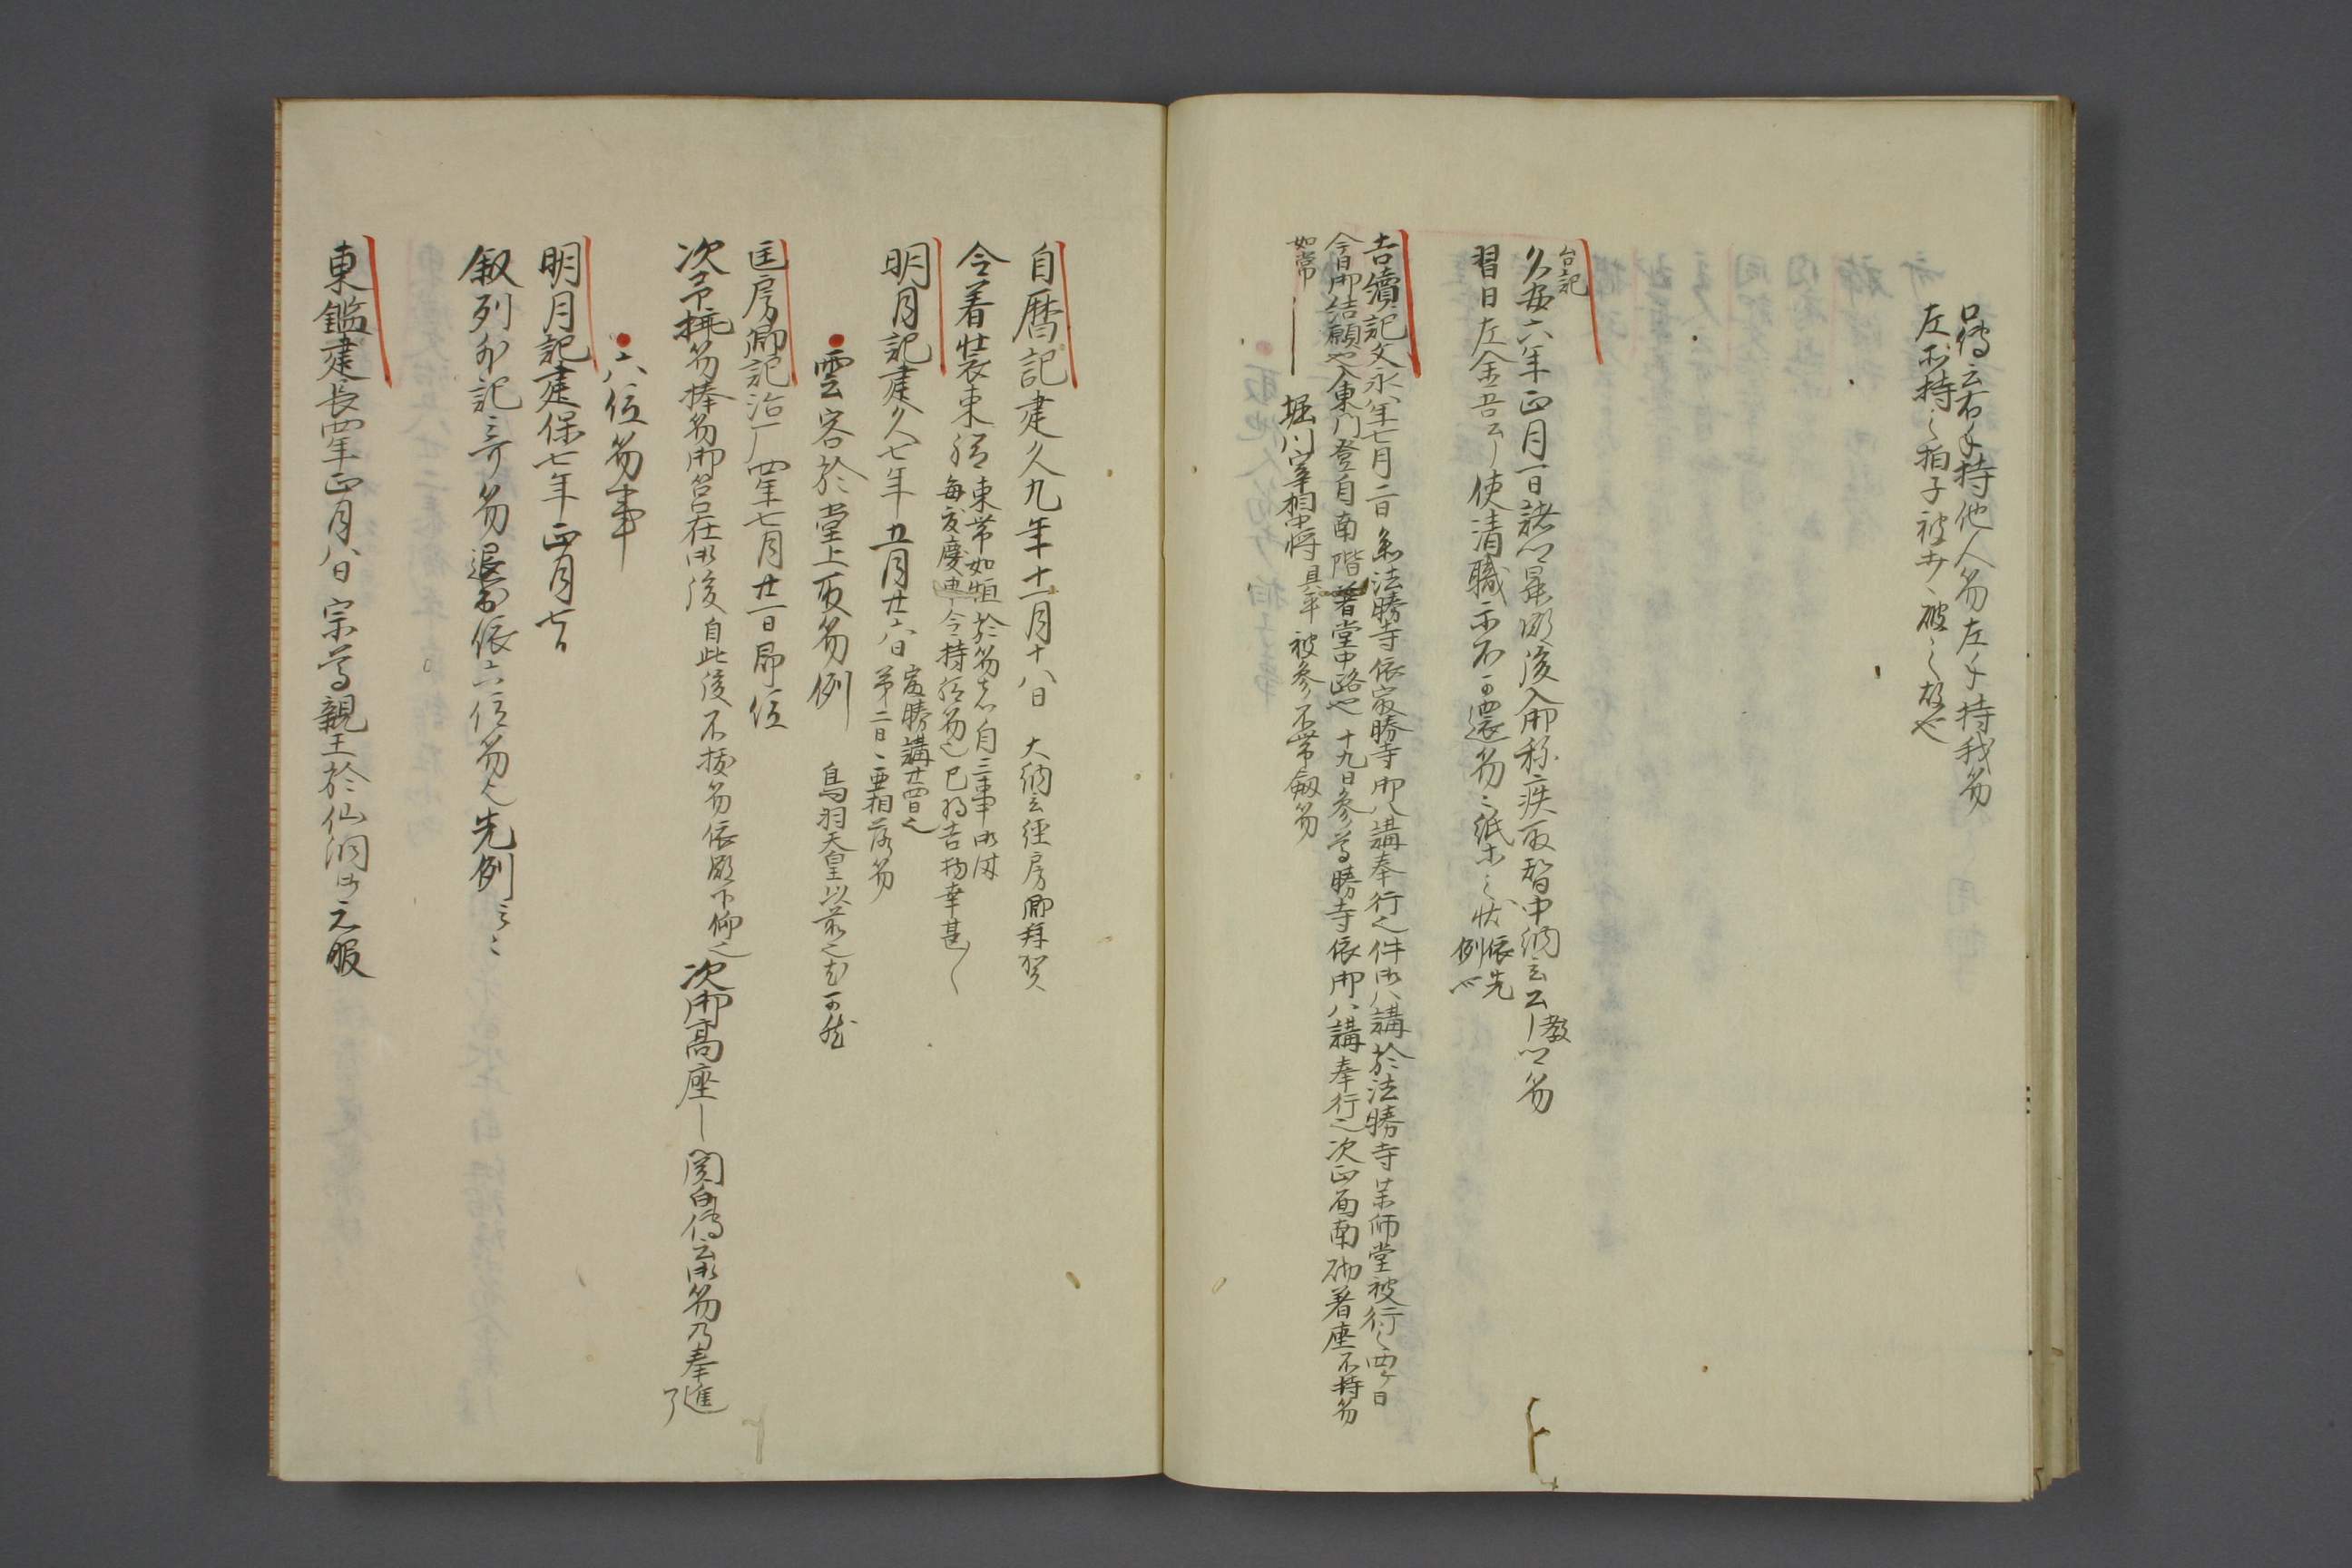 口傳云右手持他人笏左手持我笏
左不持之拍子被打破之故也
台記
久安六年正月一日諸以昇殿後入御称疾取智中納言公ー教以笏
習日左金吾公ー使清職示不可還笏之紙木之状依先
例也
吉續記文永八年七月二日参法勝寺依最勝寺御八講奉行也件御八講於法勝寺薬師堂被行之四ヶ日
今日御結願也入東門登自南階着堂中路也十九日参尊勝寺依御八講奉行之次正面南砌着座不持笏
如常　堀川宰相中将具平被参不帯劔笏
自暦記建久九年十一月十八日　大納言経房卿拜賀
今着装束後束帯如恒於笏者自三事御時
毎度慶申ー今持給笏也已為吉物幸甚〱
明月記建久七年五月廿六日最勝講廿四日之
第二日、要相落笏
雲客於堂上取笏例　鳥羽天皇以前之も可然
匡房卿記治暦四年七月廿一日即位
次予挑笏捧笏御筥在御後自此後不挿笏依殿下仰也次御高座ー関白傳云御笏乃奉進
了
六位笏事
明月記建保七年正月七日
叙列外記二寄笏退出依六位笏也先例云々
東鑑建長四年正月八日宗尊親王於仙洞御元服